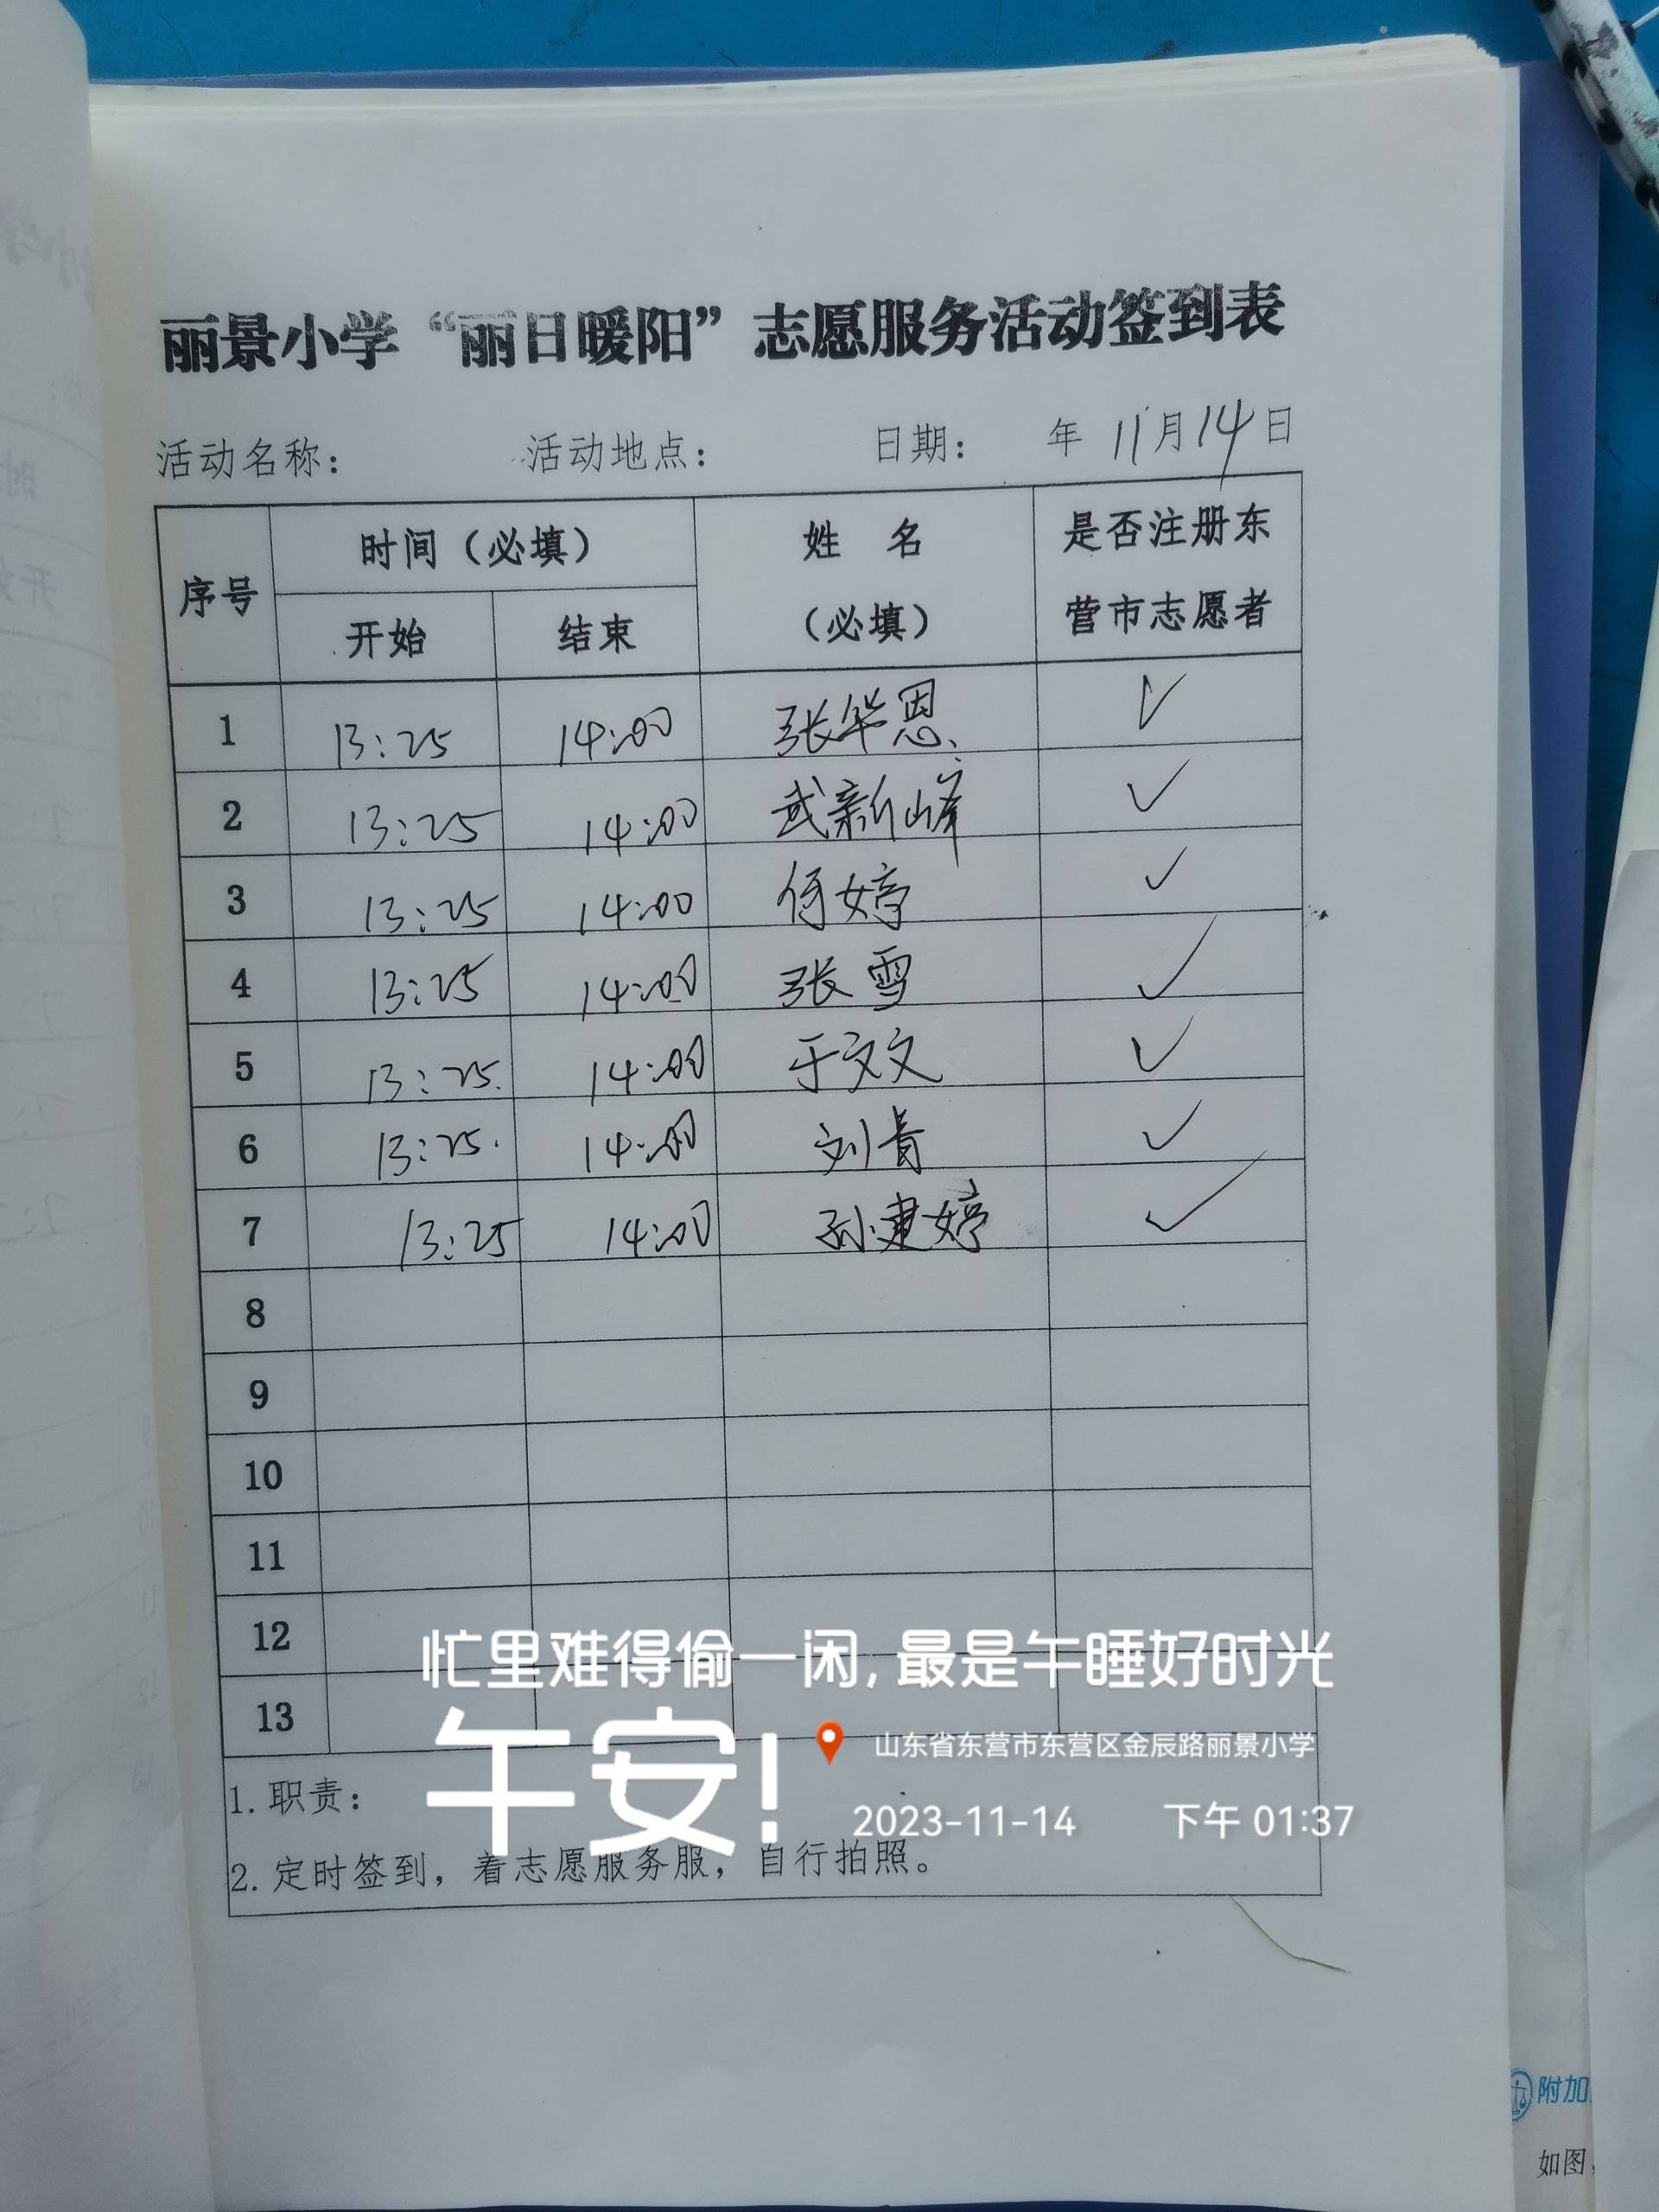 丽景小学“丽日暖阳”志愿服务活动签到表
活动名称： 活动地点： 日期： 年 11月14日
序号 时间（必填） 姓 名（必填） 是否注册东营市志愿者
开始 结束
1 13:25 14:00 张华恩 ✓
2 13:25 14:00 武新峰 ✓
3 13:25 14:00 婷 ✓
4 13:25 14:00 张雪 ✓
5 13:25 14:00 于文文 ✓
6 13:25 14:00 刘青 ✓
7 13:25 14:00 孙建婷 ✓
8
9
10
11
12
13
忙里难得偷一闲,最是午睡好时光
午安!
山东省东营市东营区金辰路丽景小学
2023-11-14 下午 01:37
1. 职责：
2. 定时签到，着志愿服务服，自行拍照。
附加
如图